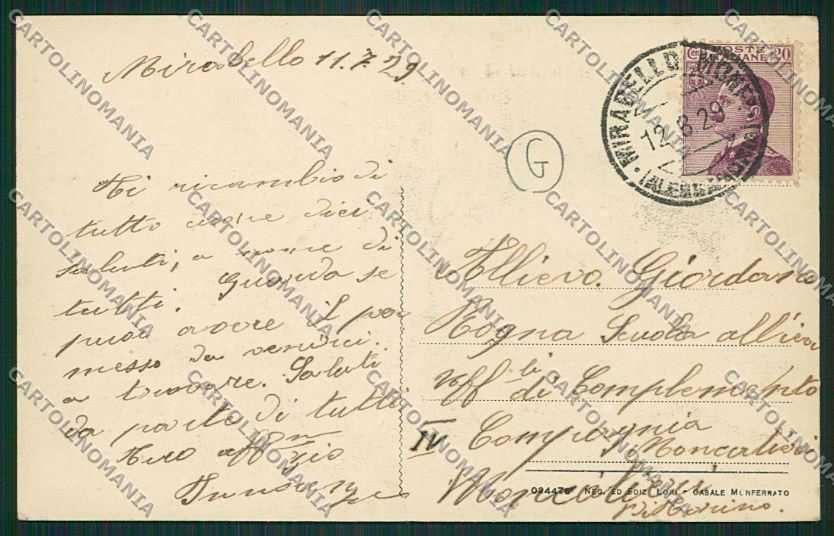 Mirabello 11.7.29
Ti ricambio di
tutto cuore dei
saluti, a nome di
tutti. Guarda se
puoi avere il per
messo da venirci
a trovare. Saluti
da parte di tutti
Tuo aff.mo zio
G
POSTE ITALIANE
cen 20
MIRABELLO MONFERRATO
12.8.29
(ALESSANDRIA)
Allievo Giordano
Rogna Scuola allievi
uff.li di Complemento
IV Compagnia
Moncalieri
Moncalieri
di Torino.
024476 NEG. ED EDIZ. LORI - CASALE MONFERRATO
CARTOLINOMANIA